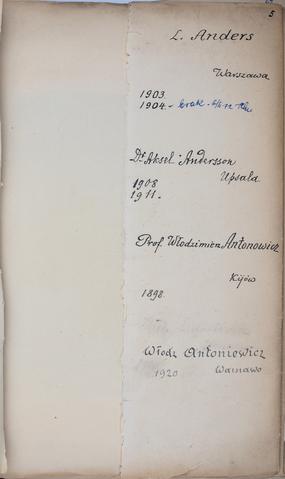 5
L. Anders
Warszawa
1903.
1904. - brak
Dr. Aksel Andersson
Upsala
1908
1911.
Prof. Włodzimierz Antonowicz
Kijów
1898.
Włodz Antoniewicz
1920